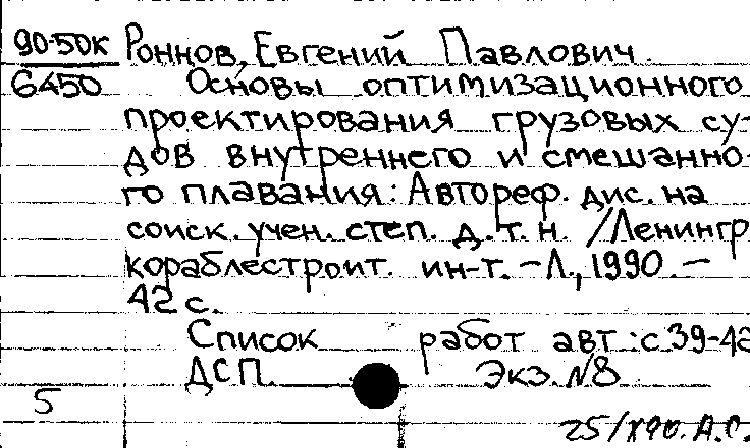 90-50к Роннов, Евгений Павлович.
6450 Основы оптимизационного
проектирования грузовых су-
дов внутреннего и смешанно-
го плавания: Автореф. дис. на
соиск. учен. степ. д.т.н. /Ленингр.
кораблестроит. ин-т. - Л., 1990. -
42 с.
Список работ авт.: с 39-42
ДСП. Экз. №8
5
25/X90. А.С.